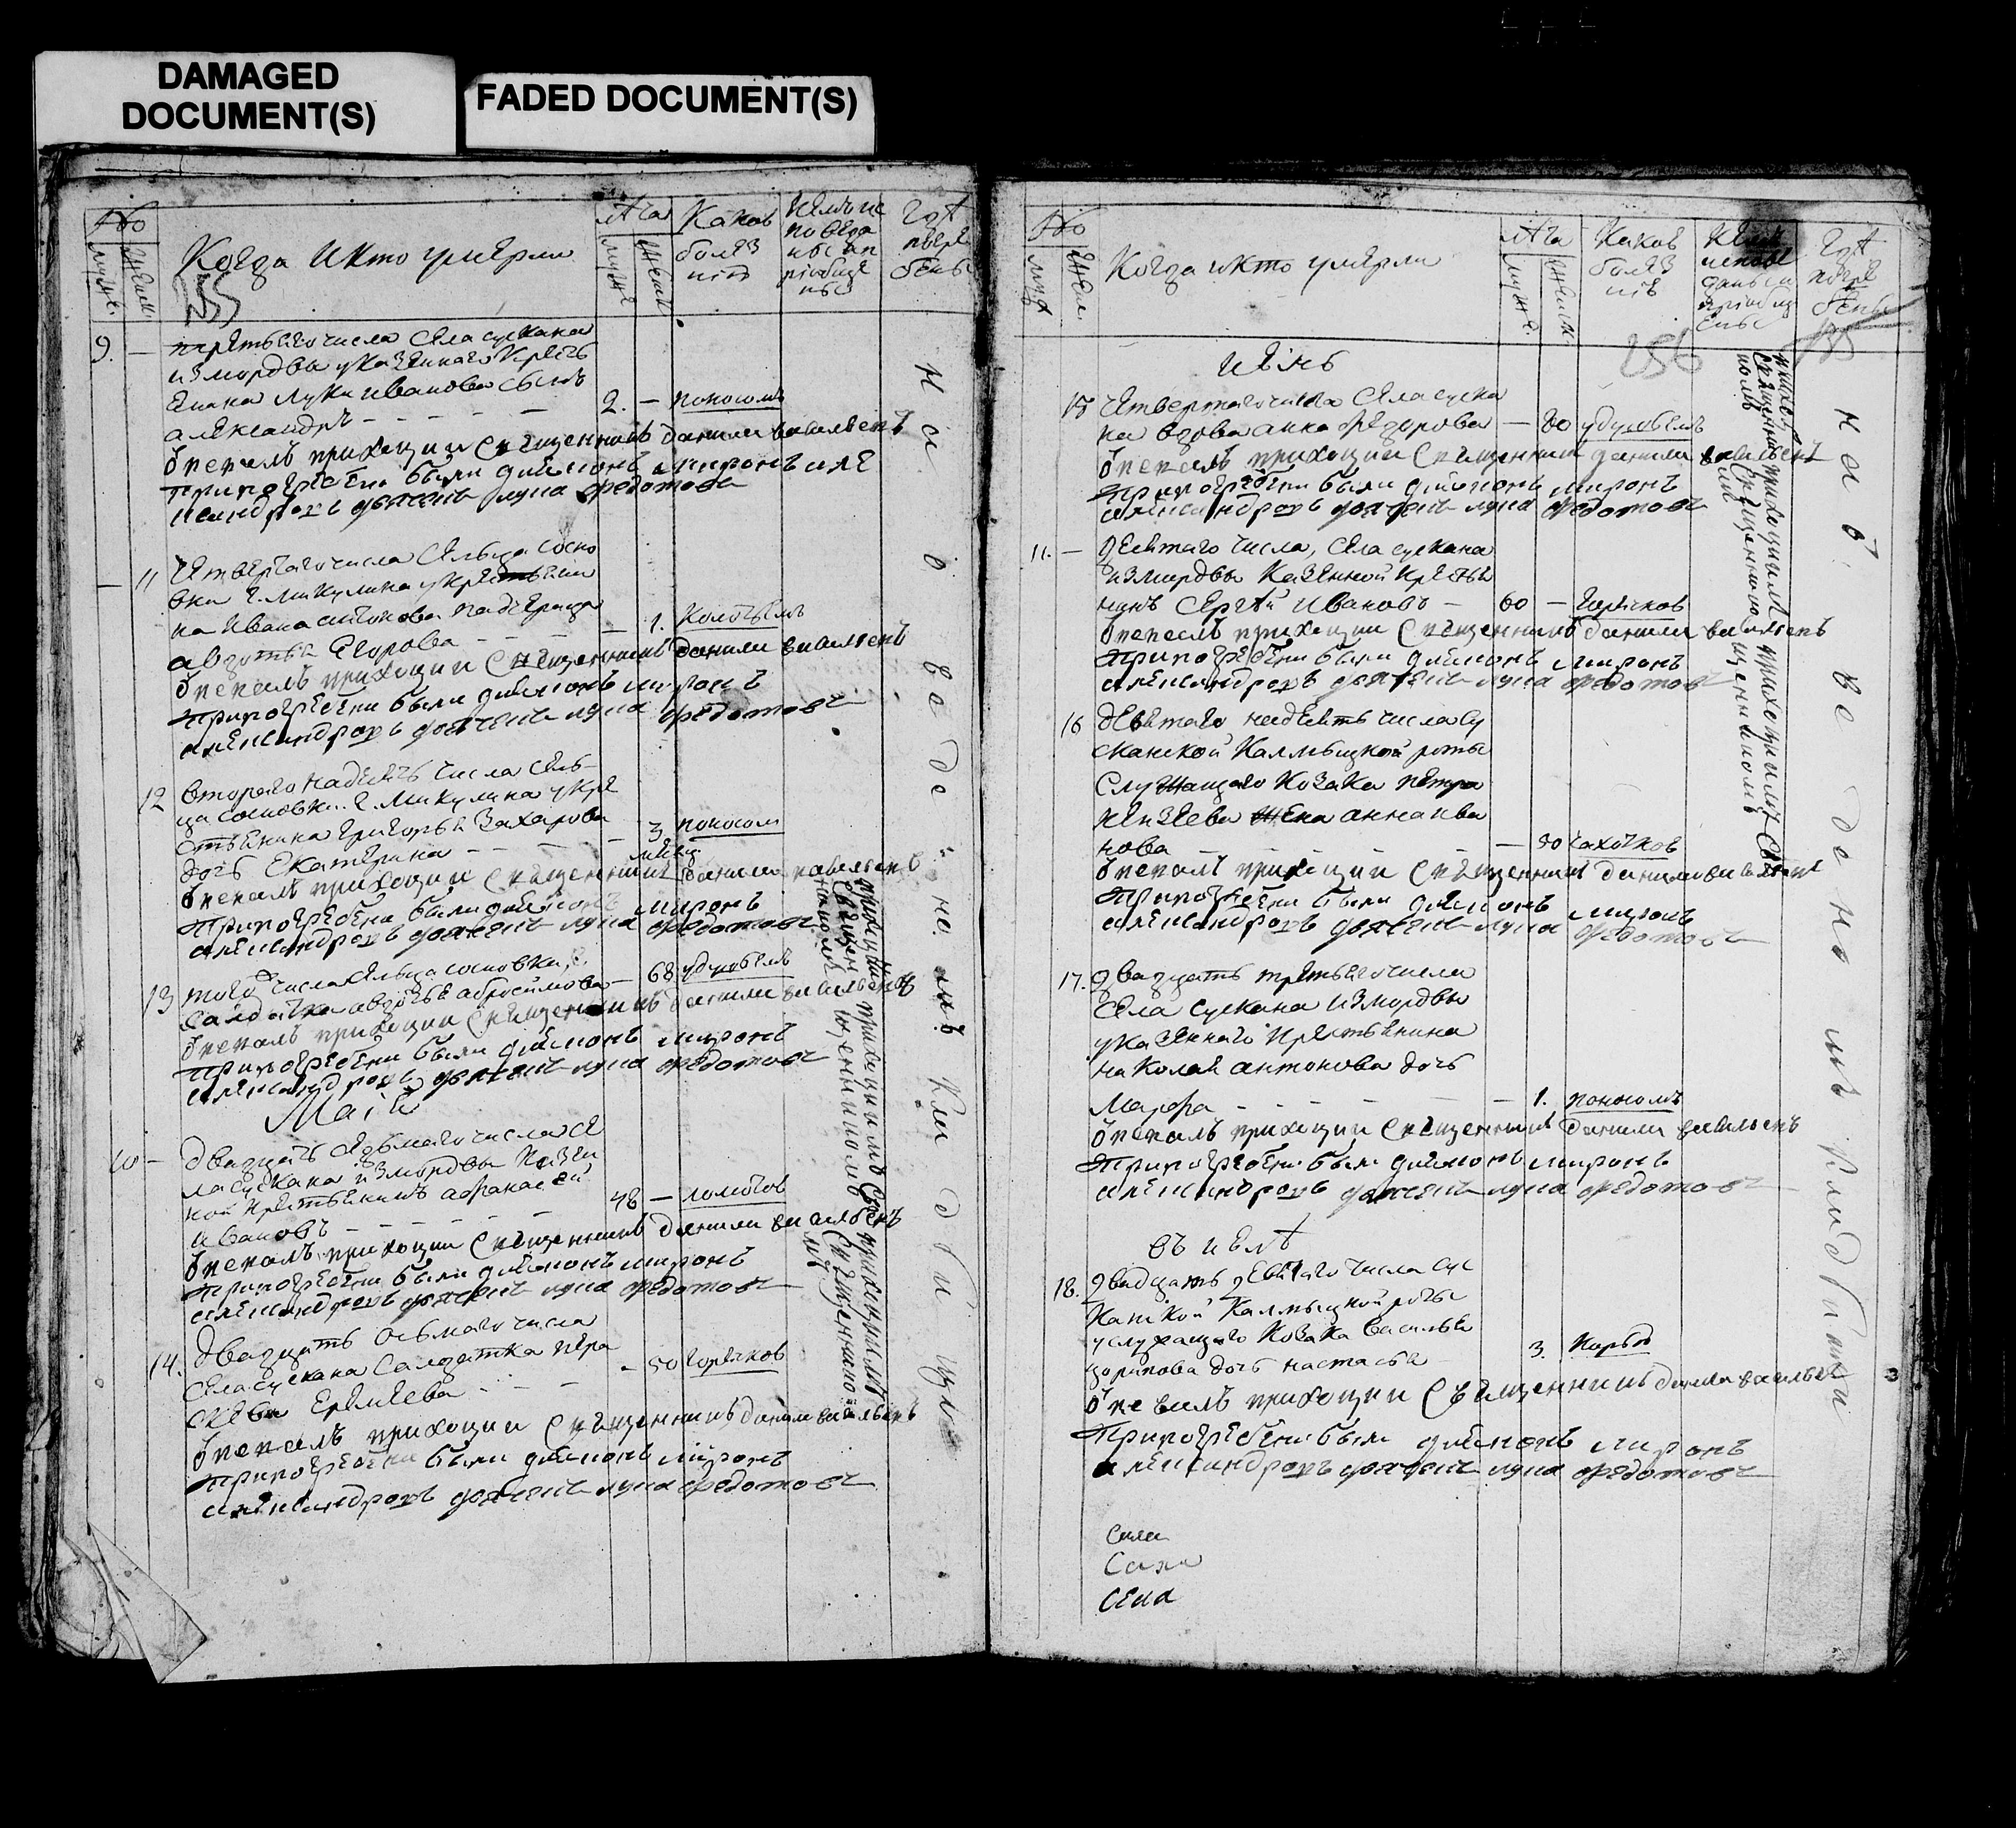 DAMAGED
DOCUMENT(S)
FADED DOCUMENT(S)
№
муж.
женс.
Когда и кто умерли
лѣта
муж
женс
Какою
болѣз
нію
Кемъ ис
поведа
ны и
пріобще
ны
Гдѣ
погре
бены
255
9. — третьяго числа села сускана
изъ мордвы у казеннаго кресть
янина луки иванова сынъ
александръ — — — — — 2. — поносомъ
Отпевалъ приходции священникъ данила васильевъ
При погребени были дьяконъ миронъ але
ксандровъ дьячекъ лука федотовъ
— 11 четвертаго числа сельца сосно
вки г. микулина у крестьяни
на ивана антонова падчерица
авдотья Егорова — — — 1. колотьемъ
Отпевалъ приходции священникъ данила васильевъ
При погребени были дьяконъ миронъ
александровъ дьячекъ лука федотовъ
12 второго надцеть числа сель
ца сосновки г. микулина у кре
стьянина григорья Захарова
дочь Екатерина — — — 3 месец. поносом
Отпевалъ приходции священникъ данила васильевъ
При погребени были дьяконъ миронъ
александровъ дьячекъ лука федотовъ
13 того числа сельца сосновки,
салдатка авдотья абросимова — 68 удушьемъ
Отпевалъ приходции священникъ данила васильевъ
При погребени были дьяконъ миронъ
александровъ дьячекъ лука федотовъ
Маія
10 — двадцать седьмаго числа се
ла сускана изъ мордвы казен
ной крестьянинъ афанасей
ивановъ — — — — 48 — ломотою
Отпевалъ приходции священникъ данила васильевъ
При погребени были дьяконъ миронъ
александровъ дьячекъ лука федотовъ
14. двадцать осьмаго числа
села сускана салдатка пара
скева Еремеева — — — 50 горячкою
Отпевалъ приходции священникъ данила васильевъ
При погребени были дьяконъ миронъ
александровъ дьячекъ лука федотовъ
приходцкимъ священникомъ
на отведенномъ кладбищѣ
№
муж
жен.
Когда и кто умерли
лѣта
муже.
женск
Какою
болѣз
нію
Кемъ
испове
даны и
пріобщ
ены
Гдѣ
погре
бены
256
июнь
15 четвертаго числа села суска
на вдова анна федорова — 80 удушьемъ
Отпевалъ приходции священникъ данила васильевъ
При погребени были дьяконъ миронъ
александровъ дьячекъ лука федотовъ
11. — десятаго числа, села сускана
изъ мордвы казенной крестья
нинъ сергѣй ивановъ — 60 — горячкою
Отпевалъ приходции священникъ данила васильевъ
При погребени были дьяконъ миронъ
александровъ дьячекъ лука федотовъ
16 девятаго надцеть числа су
сканской калмыцкой роты
служащаго козака петра
князева жена анна ива
нова — 30 чахоткою
Отпевалъ приходции священникъ данила васильевъ
При погребени были дьяконъ миронъ
александровъ дьячекъ лука федотовъ
17. двадцать третьяго числа
села сускана изъ мордвы
у казеннаго крестьянина
николая антонова дочь
марфа — — — — 1. поносомъ
Отпевалъ приходции священникъ данила васильевъ
При погребени были дьяконъ миронъ
александровъ дьячекъ лука федотовъ
въ июлѣ
18. двадцать девятаго числа сус
канской калмыцкой роты
у служащаго козака василья
дочь настасья 3. корью
Отпевалъ приходции священникъ данила васильевъ
При погребени были дьяконъ миронъ
александровъ дьячекъ лука федотовъ
села
села
приходцкимъ священникомъ
на отведенномъ кладбищѣ